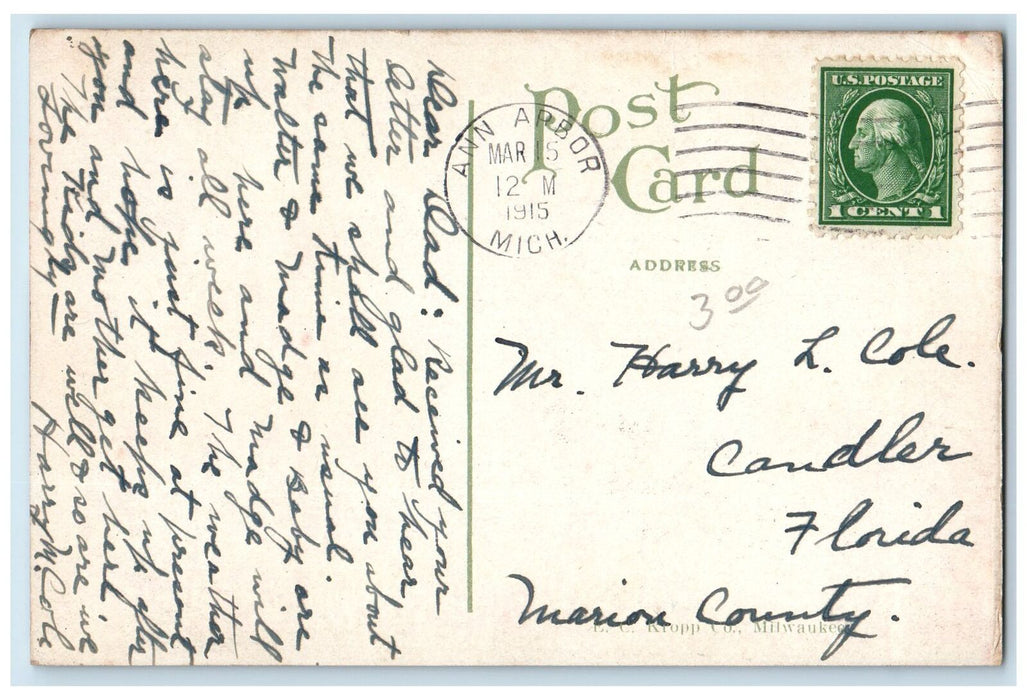 Dear Dad: Received your
letter and glad to hear
that we shall see you about
the same time as usual.
Walter & Madge & Baby are
up here and Madge will
stay all week. The weather
here is just fine at present
and hope it keeps up after
you and mother get here.
The Kiddy are well & so are we
Lovingly— Harry M. Cole
Post
Card
ANN ARBOR
MAR 15
12 M
1915
MICH.
U.S. POSTAGE
1 CENT 1
ADDRESS
3 00
Mr. Harry L. Cole.
Candler
Florida
Marion County.
E. C. Kropp Co., Milwaukee